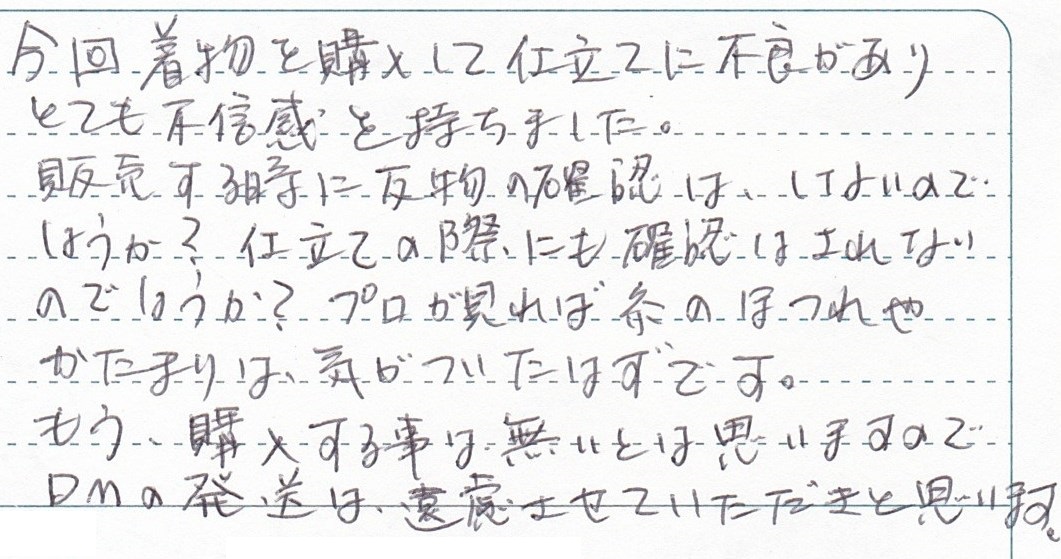 今回着物を購入して仕立てに不良があり
とても不信感を持ちました。
販売する時に反物の確認は、してよいので
しょうか？仕立ての際にも確認はされない
のでしょうか？プロが見れば糸のほつれや
かたまりは、気がついたはずです。
もう、購入する事は無いとは思いますので
DMの発送は、遠慮させていただきと思います。